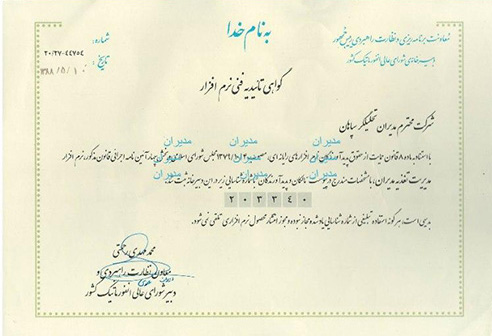 به نام خدا
معاونت برنامه‌ریزی و نظارت راهبردی رییس جمهور
دبیرخانه‌ی شورای عالی انفورماتیک کشور
شماره:
۲۰/۲۷-۴۴۷۵۴
تاریخ:
۱۳۸۸/۵/۱۰
گواهی تائیدیه فنی نرم افزار
شرکت محترم مدیران تحلیلگر سپاهان
مدیران مدیران مدیران
با استناد ماده ۸ قانون حمایت از حقوق پدیدآورندگان نرم افزارهای رایانه‌ای، مصوب ۱۳۷۹ مجلس شورای اسلامی و آئین نامه اجرائی قانون مذکور، نرم افزار
مدیران مدیران مدیران
مدیریت تغذیه مدیران، با مشخصات مندرج در پیوست مالکان و پدیدآورندگان با شماره شناسایی زیر در این دبیرخانه ثبت شد.
مدیران مدیران مدیران
۲۰۳۳۴۰
بدیهی است، هر گونه استفاده تبلیغی از شماره شناسایی یاد شده مجاز نبوده و مجوز انتشار محصول نرم افزاری تلقی نمی شود.
محمد مهدی رحمتی
معاون نظارت راهبردی و
دبیر شورای عالی انفورماتیک کشور